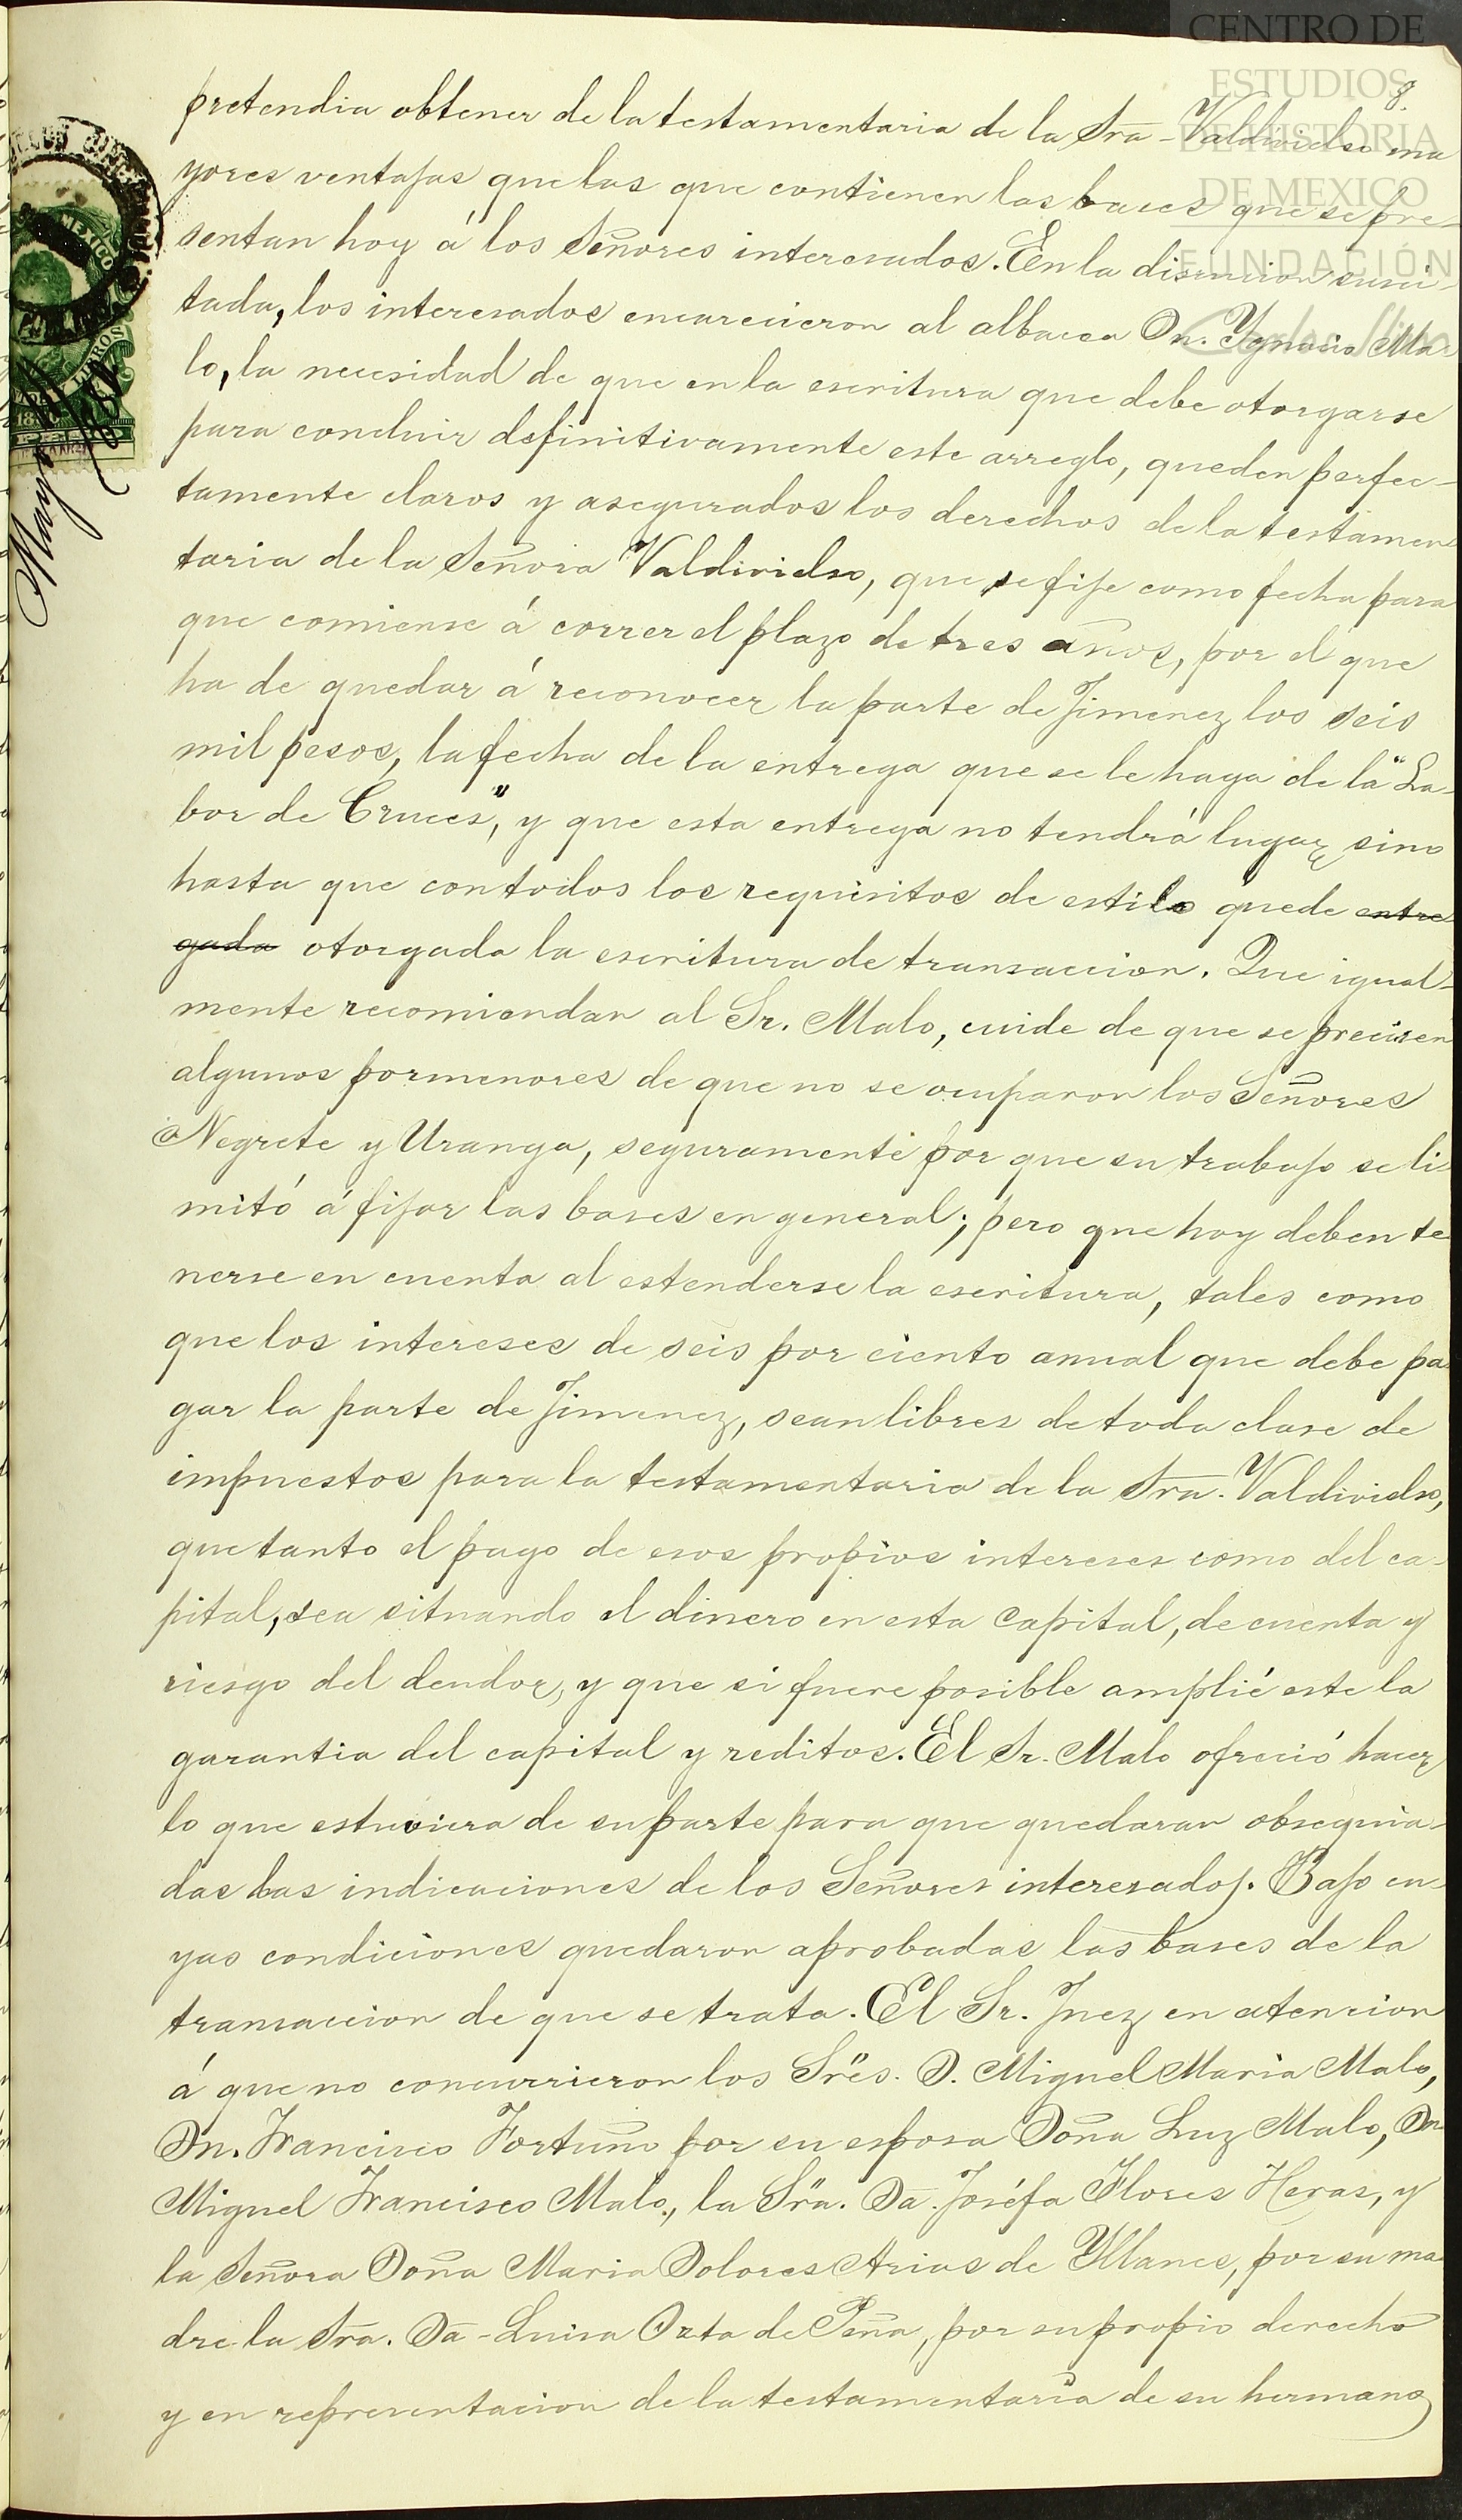 CENTRO DE
ESTUDIOS
DE HISTORIA
DE MEXICO
FUNDACIÓN
Carlos Slim
8.
pretendia obtener de la testamentaria de la Sra. Valdivielso ma
yores ventajas que las que contienen las bases que se pre-
sentan hoy á los Señores interesados. En la discucion susci-
tada, los interesados encarecieron al albacea Dn. Ygnacio Ma-
lo, la necesidad de que en la escritura que debe otorgarse
para concluir definitivamente este arreglo, queden perfec-
tamente claros y asegurados los derechos de la testamen
taria de la Señora Valdivielso, que se fije como fecha para
que comiense á correr el plazo de tres años, por el que
ha de quedar á reconocer la parte de Jimenez los seis
mil pesos, la fecha de la entrega que se le haga de la "La-
bor de Cruces", y que esta entrega no tendrá lugar sino
hasta que con todos los requisitos de estilo quede entre
gada otorgada la escritura de transaccion. Que igual-
mente recomiendan al Sr. Malo, cuide de que se precisen
algunos pormenores de que no se ocuparon los Señores
Negrete y Uranga, seguramente por que su trabajo se li
mitó á fijar las bases en general; pero que hoy deben te
nerse en cuenta al estenderse la escritura, tales como
que los intereses de seis por ciento anual que debe pa
gar la parte de Jimenez, sean libres de toda clase de
impuestos para la testamentaria de la Sra. Valdivielso,
que tanto el pago de esos propios intereses como del ca-
pital, sea situando el dinero en esta Capital, de cuenta y
riesgo del deudor, y que si fuere posible amplié este la
garantia del capital y reditos. El Sr. Malo ofreció hacer
lo que estuviera de su parte para que quedaran obsequia-
das las indicaciones de los Señores interesados. Bajo cu-
yas condiciones quedaron aprobadas las bases de la
transaccion de que se trata. El Sr. Juez en atencion
á que no concurrieron los Sres. D. Miguel Maria Malo,
Dn. Francisco Fortuño por su esposa Doña Luz Malo, Dn
Miguel Francisco Malo, la Sra. Da. Joséfa Flores Heras, y
la Señora Doña Maria Dolores Arias de Yllanes, por su ma
dre la Sra. Da. Luisa Orta de Peña, por su propio derecho
y en representacion de la testamentaria de su hermano
MEXICO
LIBROS
Mayo